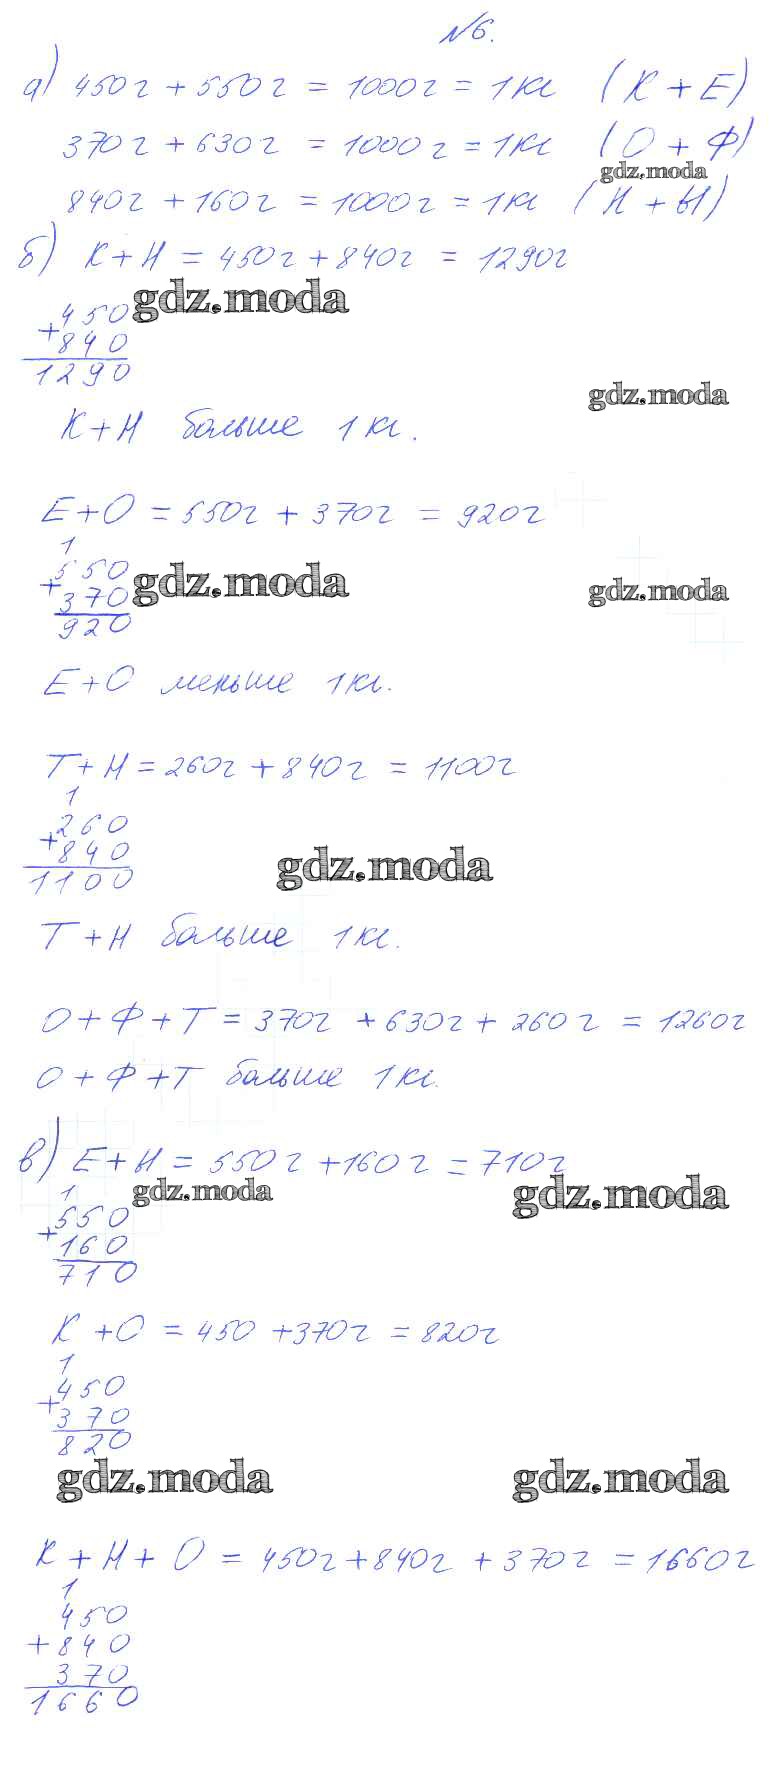 №6.
а) 450г + 550г = 1000г = 1кг (К + Е)
370г + 630г = 1000г = 1кг (О + Ф)
gdz.moda
840г + 160г = 1000г = 1кг (Н + Ы)
б) К+Н = 450г+840г = 1290г
gdz.moda
450
+
840
1290
gdz.moda
К+Н больше 1кг.
Е+О = 550г + 370г = 920г
1
550
gdz.moda
gdz.moda
+
370
920
Е+О меньше 1кг.
Т+Н = 260г + 840г = 1100г
1
260
+
840
gdz.moda
1100
Т+Н больше 1кг.
О+Ф+Т = 370г + 630г + 260г = 1260г
О+Ф+Т больше 1кг.
в) Е+Ы = 550г +160г = 710г
1
gdz.moda
gdz.moda
550
+
160
710
К +О = 450 +370г = 820г
1
450
+
370
820
gdz.moda
gdz.moda
К + Н + О = 450г+840г + 370г = 1660г
1
450
+ 840
370
1660